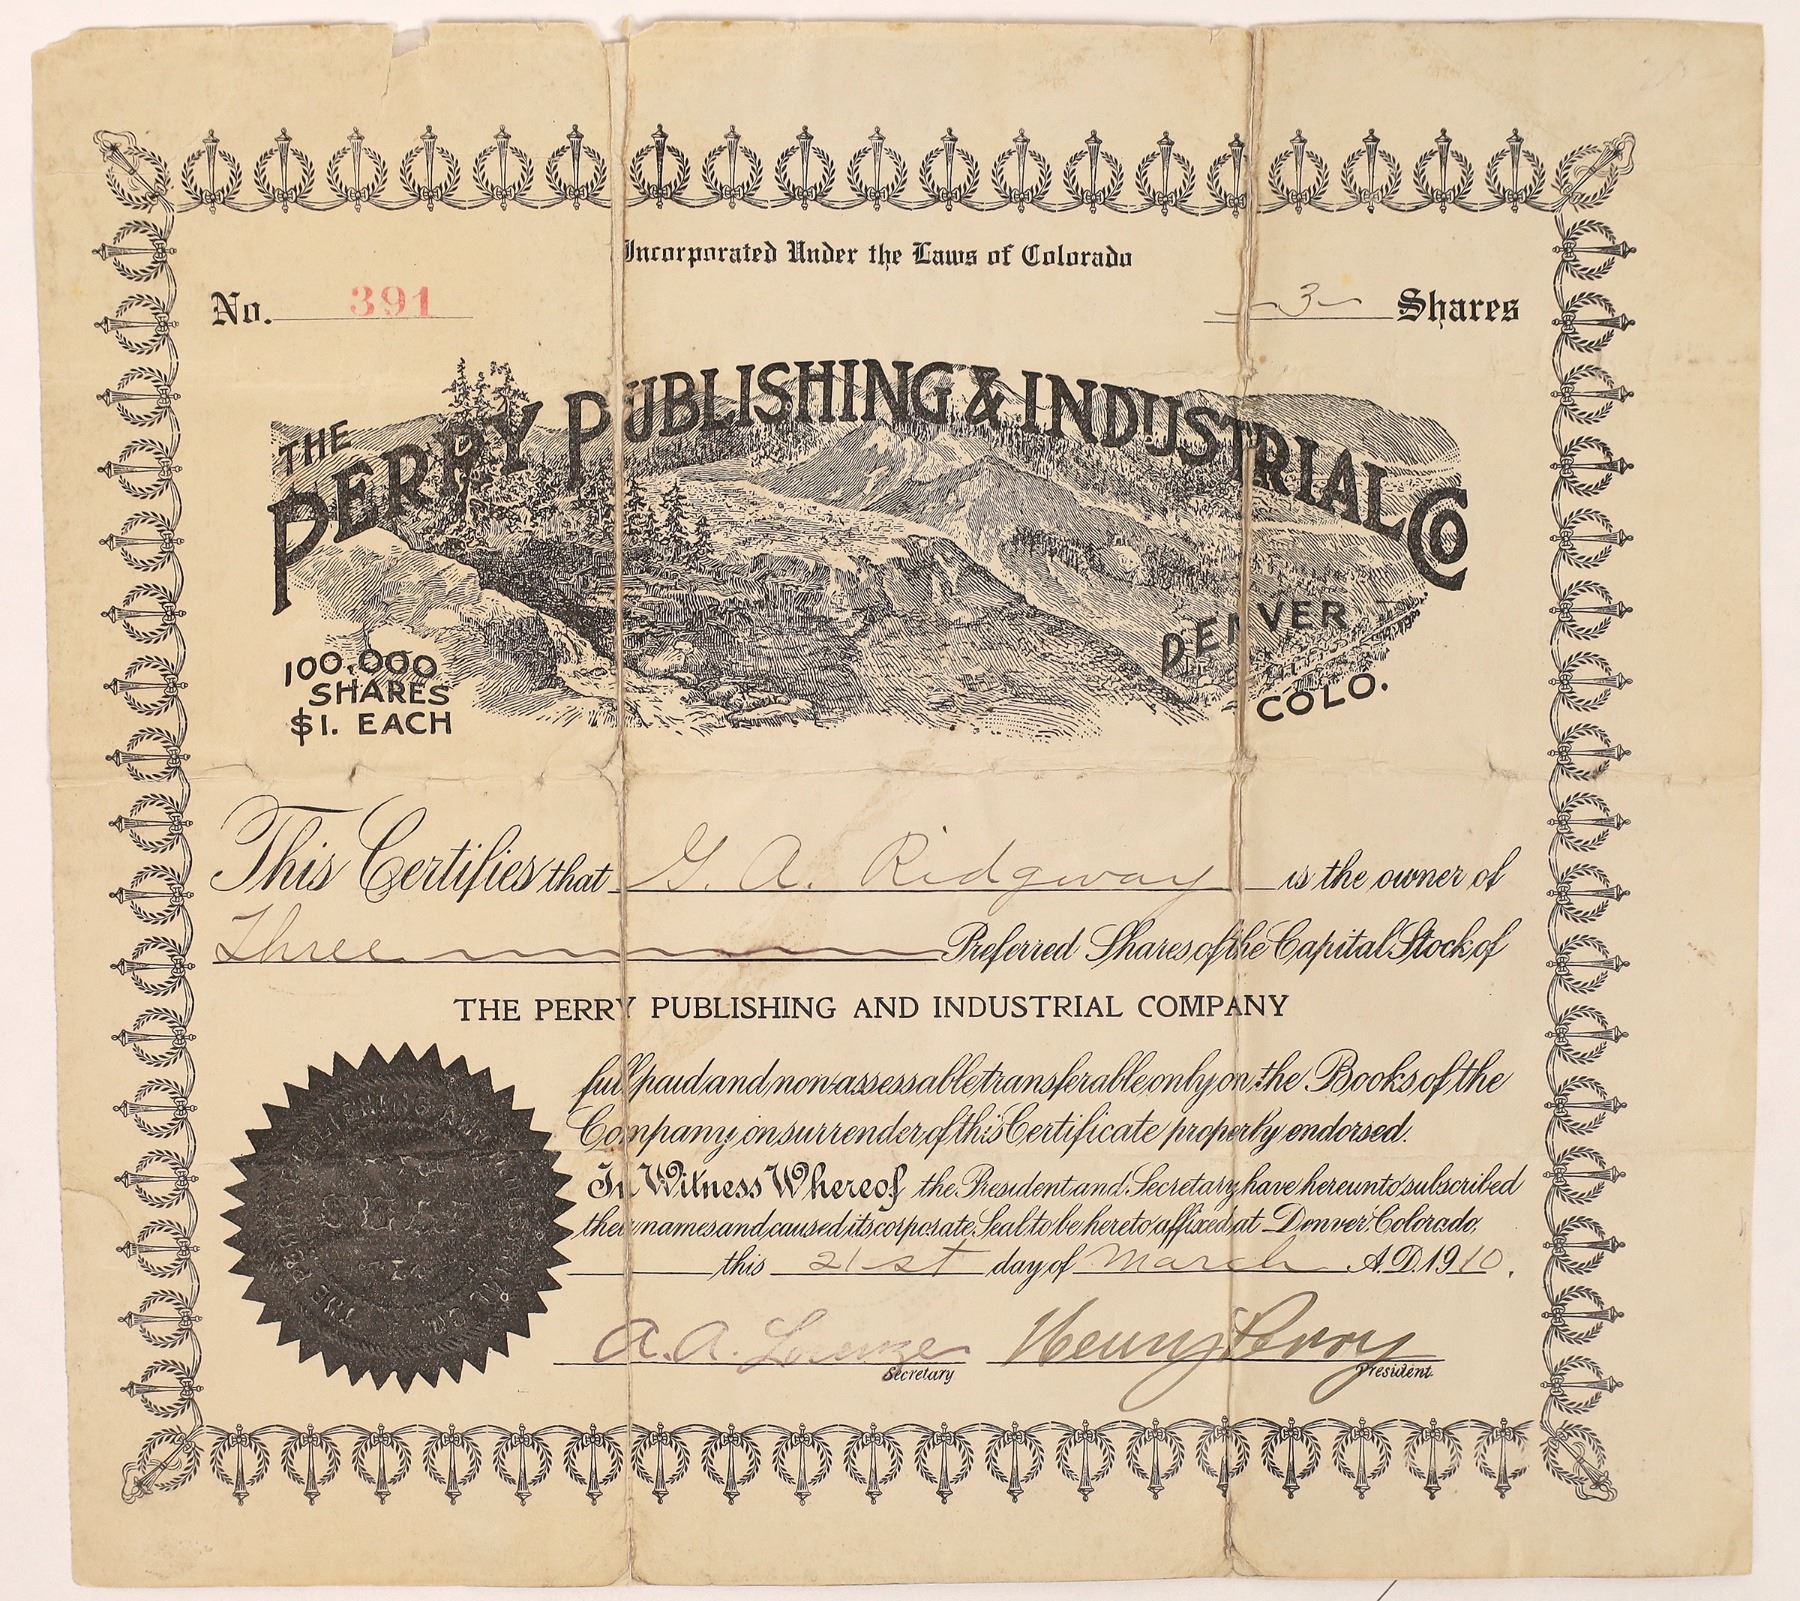 Incorporated Under the Laws of Colorado
No. 391 3 Shares
THE
PERRY PUBLISHING & INDUSTRIAL CO
DENVER
COLO.
100,000
SHARES
$1. EACH
This Certifies that G. A. Ridgway is the owner of
Three Preferred Shares of the Capital Stock of
THE PERRY PUBLISHING AND INDUSTRIAL COMPANY
full paid and non-assessable transferable only on the Books of the
Company on surrender of this Certificate properly endorsed.
In Witness Whereof, the President and Secretary have hereunto subscribed
their names and caused its corporate Seal to be hereto affixed at Denver, Colorado,
this 21st day of March A.D. 1910.
A. A. Henry Perry
Secretary President
THE PUBLISHING